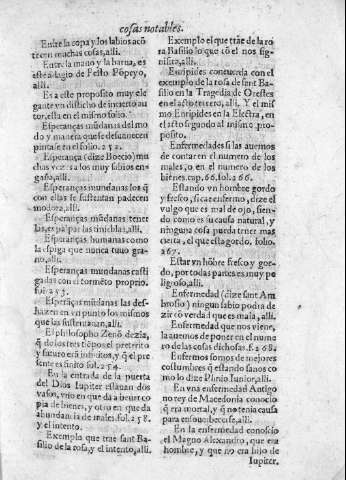 cosas notables.
Entre la copa y los labios acõ
tecen muchas cosas, alli.
Entre la mano y la barua, es
este adagio de Festo Põpeyo,
alli.
Es a este proposito muy ele
gante vn distischo de incierto au
tor. està en el mismo folio.
Esperanças mũdanas del mo
do y manera que se desuanecen
pintase en el folio. 252.
Esperança (dize Boecio) mu
chas vezes a los muy sabios en-
gaña, alli.
Esperanças mundanas los q̃
con ellas se sustentan padecen
modorra, alli.
Esperanças mũdanas tener
las, es palpar las tinieblas, alli.
Esperanças humanas como
la espiga que nunca tuuo gra-
no, alli.
Esperanças mundanas casti
gadas con tormẽto proprio.
fol. 253.
Esperãças mũdanas las des-
hazen en vn punto los mismos
que las sustentauan, alli.
El philosopho Zenõ dezia,
q̃ de los tres tiẽpos el preterito
y futuro erã infinitos, y q̃ el pre
sente es finito fol. 254.
En la entrada de la puerta
del Dios Iupiter estauan dos
vasos, vno en que da a beuer co
pia de bienes, y otro en que da
abundancia de males. fol. 258.
y el intento.
Exemplo que trae sant Ba-
silio de la rosa, y el intento, alli.
Exemplo el que trae de la ro
sa Basilio lo que cõ el nos sig-
nifica, alli.
Euripides concuerda con el
exemplo de la rosa de sant Ba-
silio en la Tragedia de Orestes
en el acto tercero, alli. Y el mis
mo Euripides en la Electra, en
el acto segundo al mismo pro-
posito.
Enfermedades si las auemos
de contar en el numero de los
males, o en el numero de los
bienes. cap. 66. fol. 266.
Estando vn hombre gordo
y fresco, si cae enfermo, dize el
vulgo que es mal de ojo, sien-
do como es su causa natural, y
ninguna cosa pueda tener mas
cierta, el que esta gordo. folio.
267.
Estar vn hõbre fresco y gor-
do, por todas partes es muy pe
ligroso, alli.
Enfermedad (dize sant Am
brosio) ningun sabio podra de-
zir cõ verdad que es mala, alli.
Enfermedad que nos viene,
la auemos de poner en el nume
ro de las cosas dichosas. f. 268.
Enfermos somos de mejores
costumbres q̃ estando sanos co
mo lo dize Plinio Iunior, alli.
En vna enfermedad Antigo
no rey de Macedonia conocio
q̃ era mortal, y q̃ no tenia causa
para ensoberuecerse, alli.
En la enfermedad conoscio
el Magno Alexandro, que era
hombre, y que no era hijo de
Iupiter.